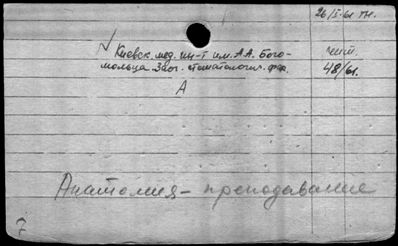 26/I-61 тн.
✓ Киевск. мед. ин-т им. А.А. Бого-
мольца. Заоч. стоматологич. фак.
лент.
48/61.
А
Анатомия - преподавание
7